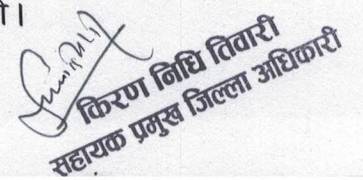 ो।
किरण निधि तिवारी
सहायक प्रमुख जिल्ला अधिकारी